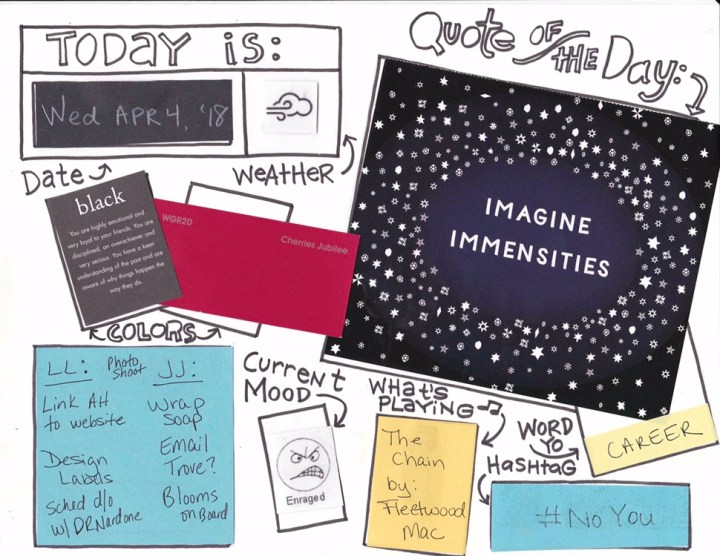 TODAY is:
Wed APR 4, '18
Date
WEATHER
Quote OF THE Day:
IMAGINE
IMMENSITIES
black
You are highly emotional and
very loyal to your friends. You are
disciplined, an overachiever and
very serious. You have a keen
understanding of the past and are
aware of why things happen the
way they do.
WGR20
Cherries Jubilee
COLORS
LL:
Link AH
to website
Design
Labels
Sched d/o
w/ DR Nardone
Photo
shoot
JJ:
Wrap
soap
Email
Trove?
Blooms
on Board
CURRENT
MOOD
Enraged
WHAT'S
PLAYING
The
Chain
by:
Fleetwood
Mac
WORD
YO
CAREER
HaSHtaG
#No You